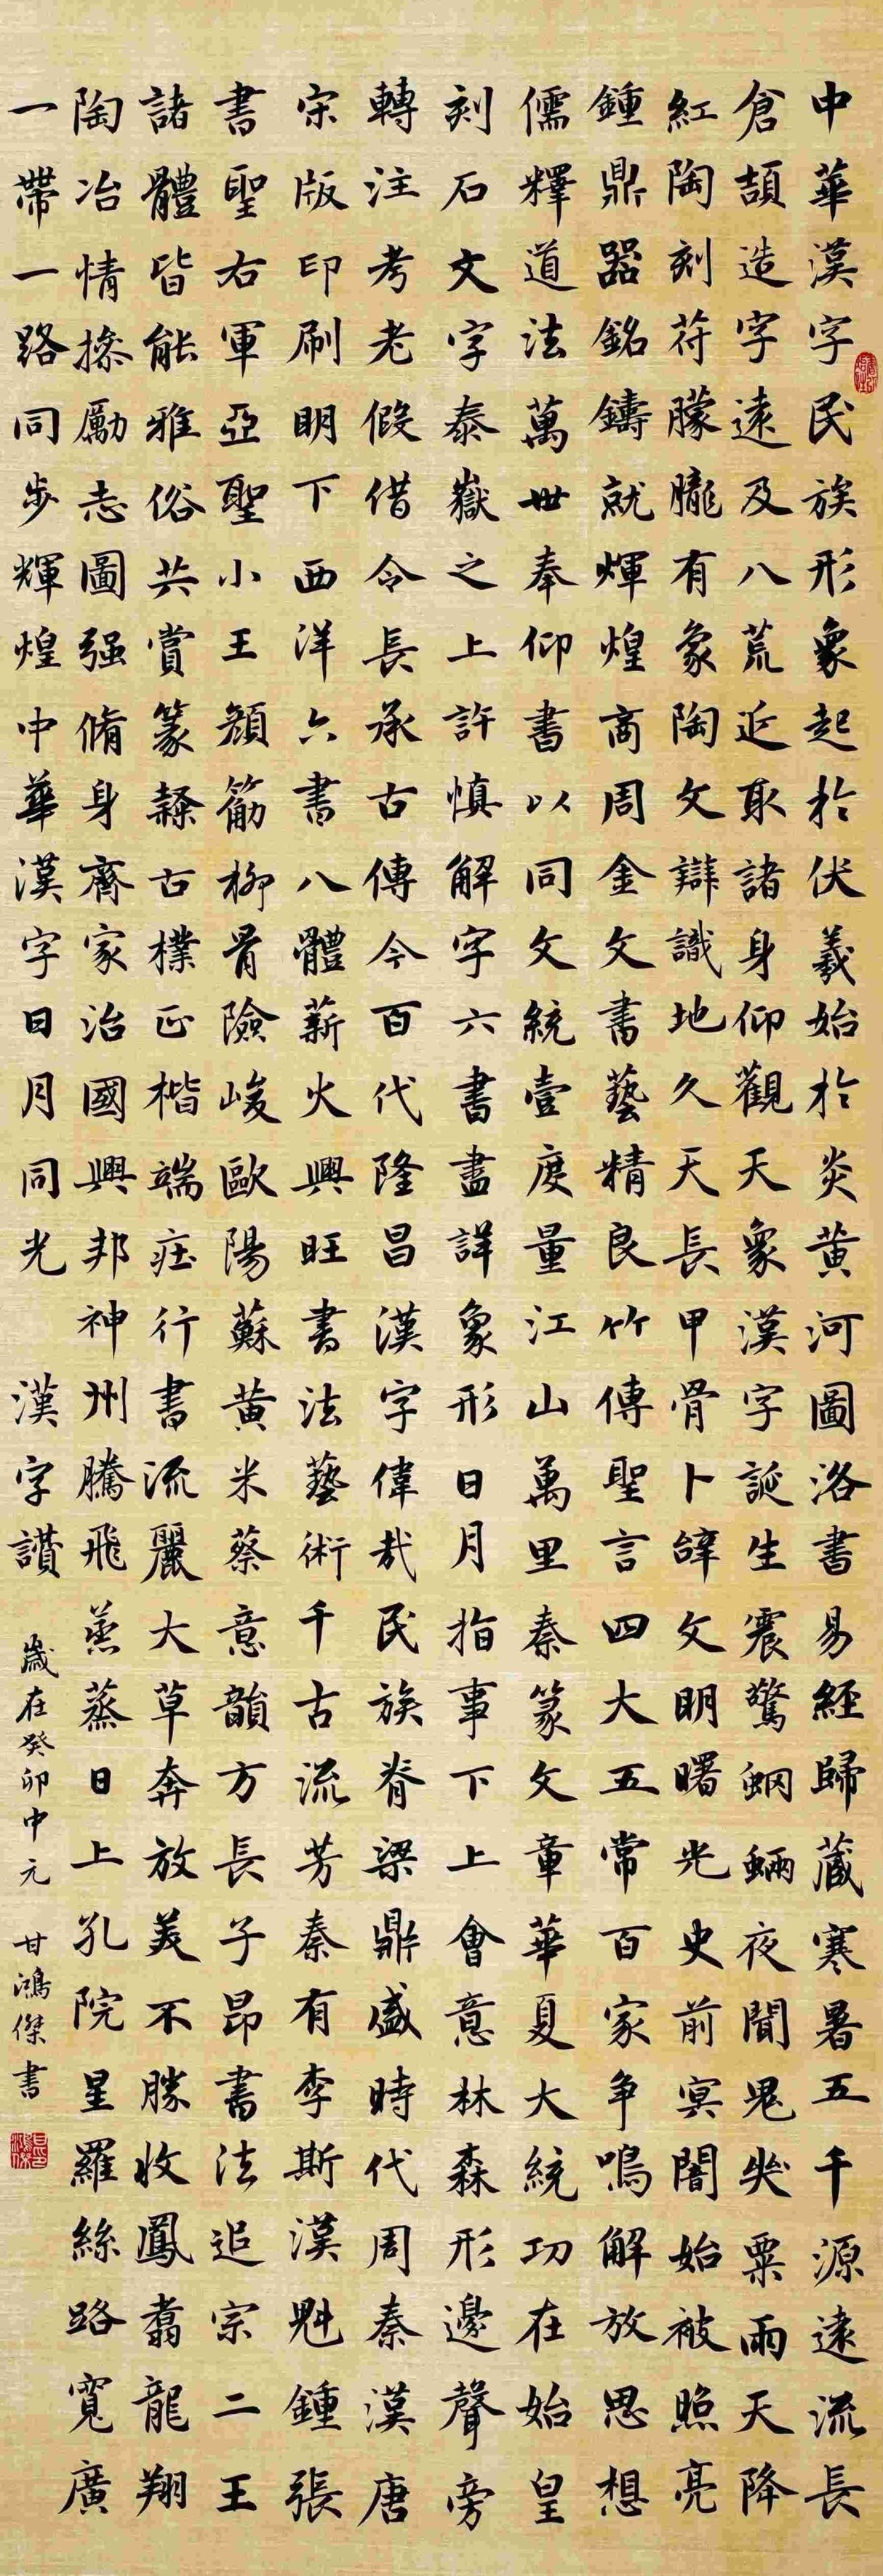 中華漢字民族形象起於伏羲始於炎黃河圖洛書易經歸藏寒暑五千源遠流長
倉頡造字遠及八荒近取諸身仰觀天象漢字誕生震驚蝄蜽夜聞鬼哭粟雨天降
紅陶刻符朦朧有象陶文辯識地久天長甲骨卜辭文明曙光史前冥闇始被照亮
鍾鼎器銘鑄就煇煌商周金文書藝精良竹傳聖言四大五常百家争鳴解放思想
儒釋道法萬世奉仰書以同文統壹度量江山萬里秦篆文章華夏大統功在始皇
刻石文字泰嶽之上許慎解字六書盡詳象形日月指事下上會意林森形邊聲旁
轉注考老假借令長承古傳今百代隆昌漢字偉哉民族脊梁鼎盛時代周秦漢唐
宋版印刷明下西洋六書八體薪火興旺書法藝術千古流芳秦有李斯漢魁鍾張
書聖右軍亞聖小王顏筋柳骨險峻歐陽蘇黃米蔡意韻方長子昂書法追宗二王
諸體皆能雅俗共賞篆隸古樸正楷端莊行書流麗大草奔放美不勝收鳳翥龍翔
陶冶情操勵志圖强脩身齊家治國興邦神州騰飛蒸蒸日上孔院星羅絲路寬廣
一帶一路同步輝煌中華漢字日月同光 漢字讚 歲在癸卯中元 甘鴻傑書